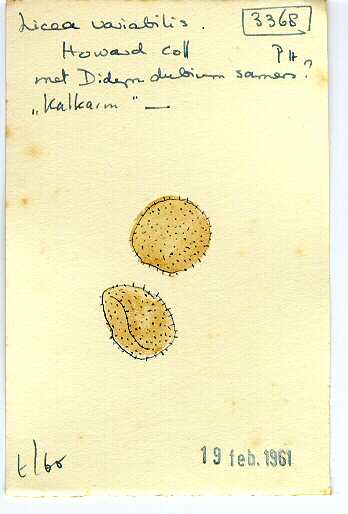 Licea variabilis. 3368
Howard coll PH?
met Didym dubium samen.
„Kalkarm" —
t/60
19 feb. 1961